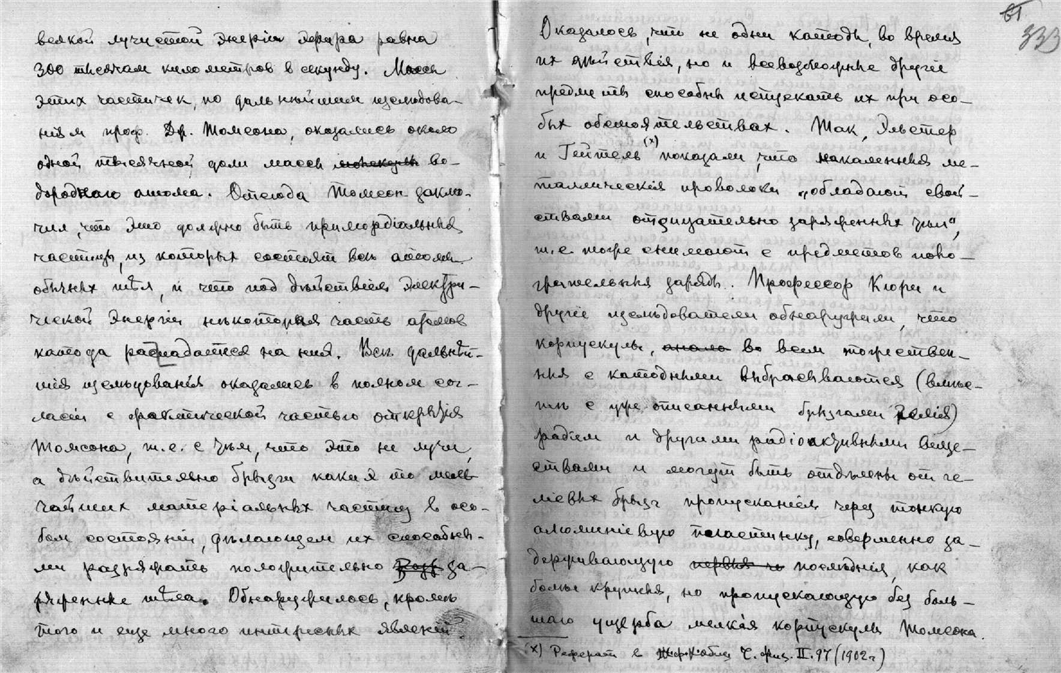 всякой лучистой энергіи эфира равна
300 тысячам километров в секунду. Масса
этих частичек, по дальнѣйшим изслѣдова-
ніям проф. Др. Томсона, оказалась около
одной тысячной доли массы молекулы во-
дороднаго атома. Отсюда Томсон заклю-
чил, что это должно быть примордіальныя
частицы, из которых состоят всѣ атомы
обычных тѣл, и что под дѣйствіем электри-
ческой энергіи нѣкоторая часть атомов
катода распадается на них. Всѣ дальнѣй-
шія изслѣдованья оказались в полном сог-
ласіи с фактической частью открытія
Томсона, т.е. с тѣм, что это не лучи,
а дѣйствительно брызги каких то мель-
чайших матеріальных частиц в осо-
бом состояніи, дѣлающем их способны-
ми разряжать положительно за-
ряженные тѣла. Обнаружилось, кромѣ
того и еще много интересных явленій
333
Оказалось, что не одни катоды, во время
их дѣйствія, но и всевозможные другіе
предметы способны испускать их при осо-
бых обстоятельствах. Так, Эльстер
и Гейтель (x) показали, что накаленныя ме-
таллическія проволоки „обладают свой-
ствами отрицательно заряженных тѣл“,
т.е. тоже снимают с предметов поло-
жительныя заряды. Профессор Кюри и
другіе изслѣдователи обнаружили, что
корпускулы, во всем тожествен-
ныя с катодными выбрасываются (вмѣс-
тѣ с уже описанными брызгами гелія)
радіем и другими радіоактивными веще-
ствами и могут быть отдѣлены от ге-
ліевых брызг пропусканіем через тонкую
алюминіевую пластинку, совершенно за-
держивающую первыя послѣднія, как
болѣе крупныя, но пропускающую без боль-
шаго ущерба мелкія корпускулы Томсона.
x) Реферат в Ч. физ. II. 97 (1902 г)